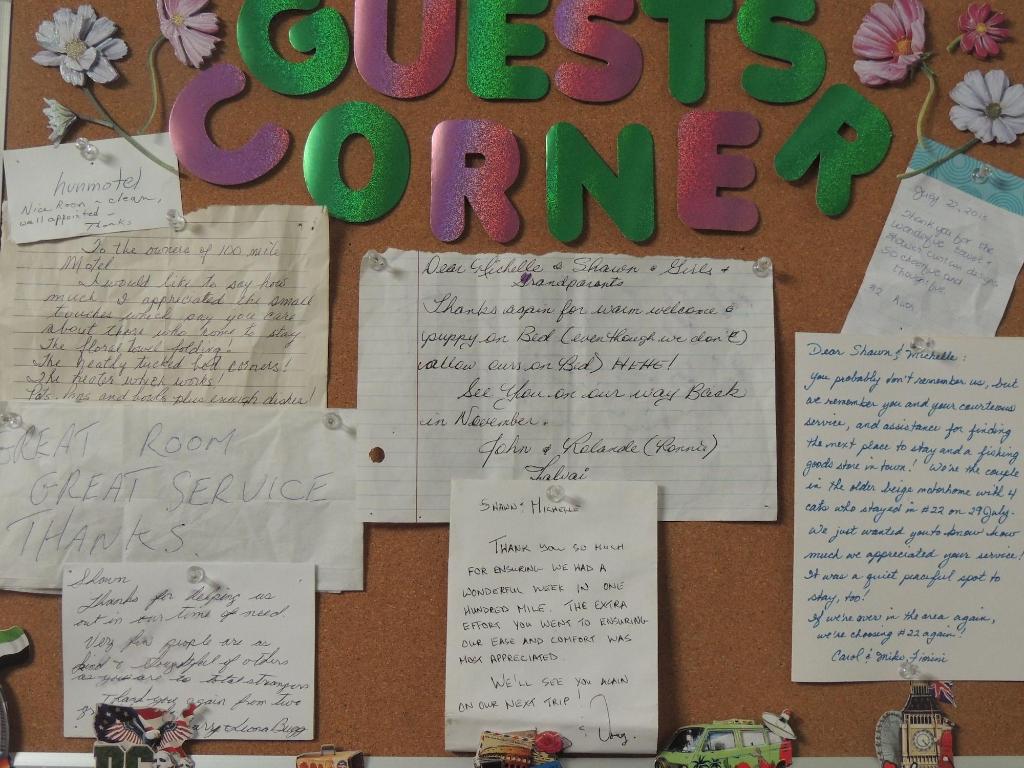 GUESTS
CORNER
hunmotel
Nice Room - clean,
well appointed -
Thanks
To the owners of 100 mile
Motel
I would like to say how
much I appreciated the small
touches which say you care
about those who come to stay
The floral towel folding!
The neatly tucked bed corners!
The heater which works!
and bowls plus enough dishes!
GREAT ROOM
GREAT SERVICE
THANKS.
Shawn
Thanks for helping us
out in our time of need.
Very few people are as
kind & thoughtful of others
as you are to total strangers
Thank you again from two
Dear Michelle & Shawn & Girls &
Grandparents
Thanks again for warm welcome &
puppy on Bed (even though we don't)
allow ours on Bed) HEHE!
See You on our way Back
in November.
John & Rolande (Ronnie)
SHAWN & MICHELLE
THANK YOU SO MUCH
FOR ENSURING WE HAD A
WONDERFUL WEEK IN ONE
HUNDRED MILE. THE EXTRA
EFFORT YOU WENT TO ENSURING
OUR EASE AND COMFORT WAS
MOST APPRECIATED.
WE'LL SEE YOU AGAIN
ON OUR NEXT TRIP!
July 22, 2015
Thank you for the
wonderful towel &
shower curtain designs
So creative and
thoughtful
#2
Dear Shawn & Michelle:
you probably don't remember us, but
we remember you and your courteous
service, and assistance for finding
the next place to stay and a fishing
goods store in town! We're the couple
in the older beige motorhome with 4
cats who stayed in #22 on 29 July.
We just wanted you to know how
much we appreciated your service!
It was a quiet peaceful spot to
stay, too!
If we're over in the area again,
we're choosing #22 again!
Carol & Mike